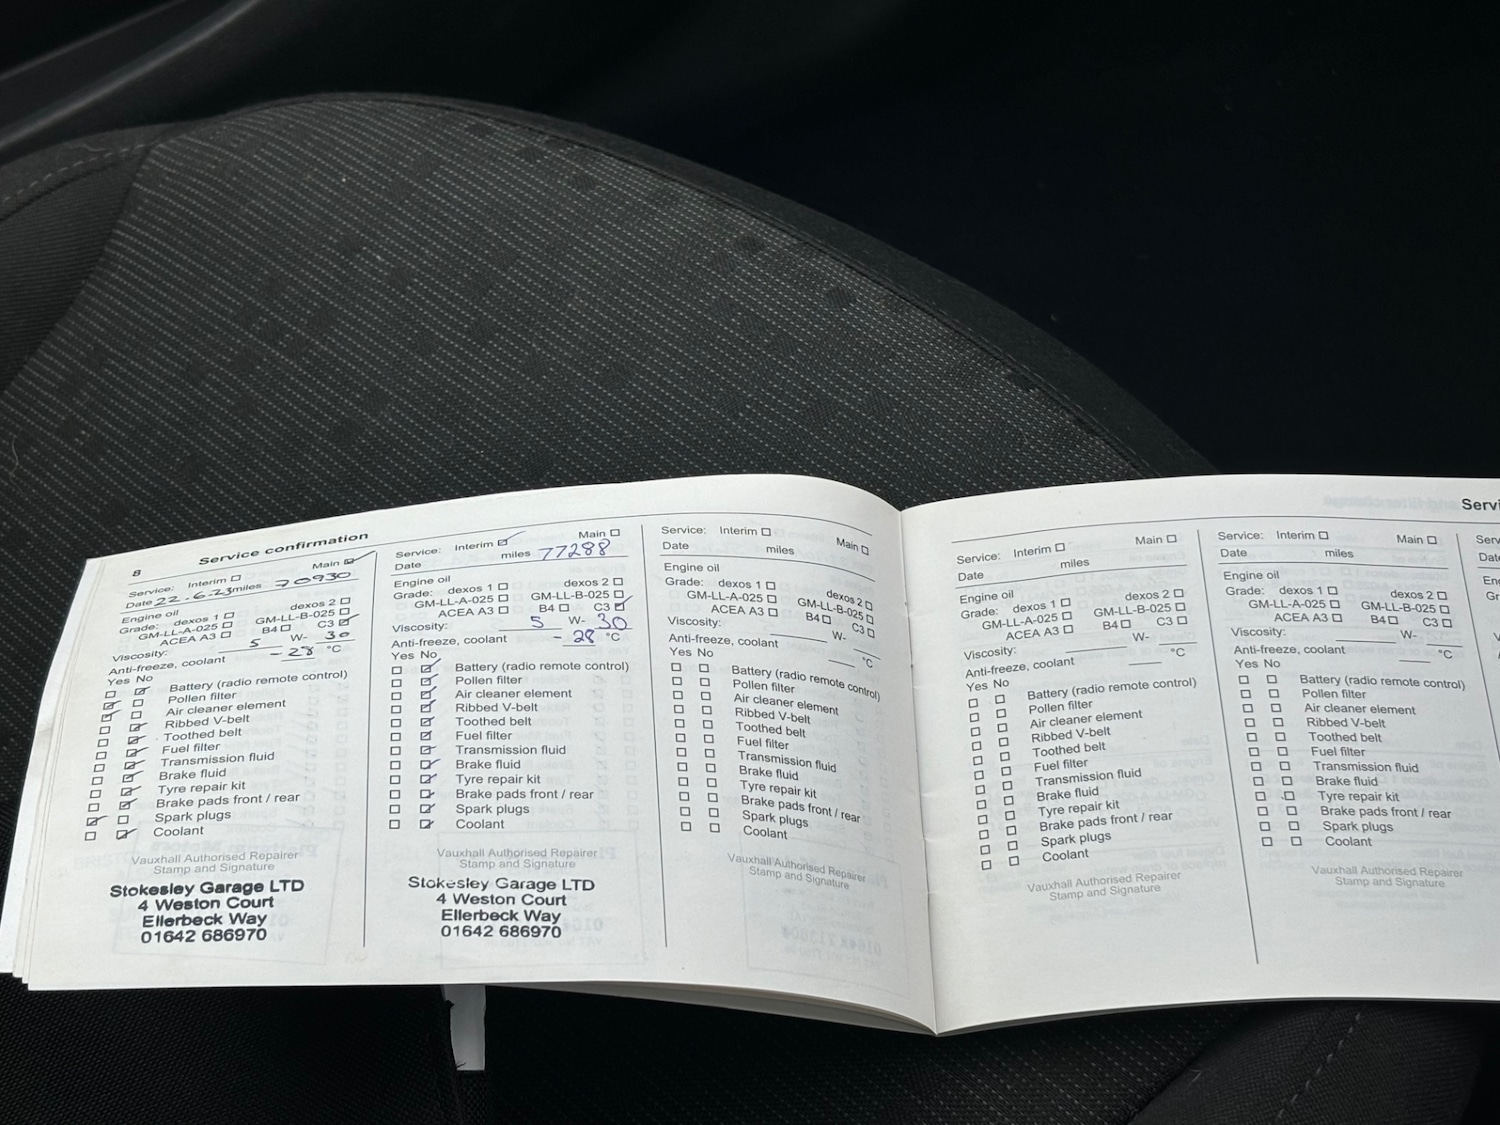 8
Service confirmation
Service: Interim Main
Date 22.6.23 miles 70930
Engine oil
Grade: dexos 1 dexos 2
GM-LL-A-025 GM-LL-B-025
ACEA A3 B4 C3
Viscosity: 5 W- 30
Anti-freeze, coolant -28 °C
Yes No
Battery (radio remote control)
Pollen filter
Air cleaner element
Ribbed V-belt
Toothed belt
Fuel filter
Transmission fluid
Brake fluid
Tyre repair kit
Brake pads front / rear
Spark plugs
Coolant
Vauxhall Authorised Repairer
Stamp and Signature
Stokesley Garage LTD
4 Weston Court
Ellerbeck Way
01642 686970
Service: Interim Main
Date miles 77288
Engine oil
Grade: dexos 1 dexos 2
GM-LL-A-025 GM-LL-B-025
ACEA A3 B4 C3
Viscosity: 5 W- 30
Anti-freeze, coolant -28 °C
Yes No
Battery (radio remote control)
Pollen filter
Air cleaner element
Ribbed V-belt
Toothed belt
Fuel filter
Transmission fluid
Brake fluid
Tyre repair kit
Brake pads front / rear
Spark plugs
Coolant
Vauxhall Authorised Repairer
Stamp and Signature
Stokesley Garage LTD
4 Weston Court
Ellerbeck Way
01642 686970
Service: Interim Main
Date miles
Engine oil
Grade: dexos 1 dexos 2
GM-LL-A-025 GM-LL-B-025
ACEA A3 B4 C3
Viscosity: W-
Anti-freeze, coolant °C
Yes No
Battery (radio remote control)
Pollen filter
Air cleaner element
Ribbed V-belt
Toothed belt
Fuel filter
Transmission fluid
Brake fluid
Tyre repair kit
Brake pads front / rear
Spark plugs
Coolant
Vauxhall Authorised Repairer
Stamp and Signature
Service: Interim Main
Date miles
Engine oil
Grade: dexos 1 dexos 2
GM-LL-A-025 GM-LL-B-025
ACEA A3 B4 C3
Viscosity: W-
Anti-freeze, coolant °C
Yes No
Battery (radio remote control)
Pollen filter
Air cleaner element
Ribbed V-belt
Toothed belt
Fuel filter
Transmission fluid
Brake fluid
Tyre repair kit
Brake pads front / rear
Spark plugs
Coolant
Vauxhall Authorised Repairer
Stamp and Signature
Servi
Service: Interim Main
Date miles
Engine oil
Grade: dexos 1 dexos 2
GM-LL-A-025 GM-LL-B-025
ACEA A3 B4 C3
Viscosity: W-
Anti-freeze, coolant °C
Yes No
Battery (radio remote control)
Pollen filter
Air cleaner element
Ribbed V-belt
Toothed belt
Fuel filter
Transmission fluid
Brake fluid
Tyre repair kit
Brake pads front / rear
Spark plugs
Coolant
Vauxhall Authorised Repairer
Stamp and Signature